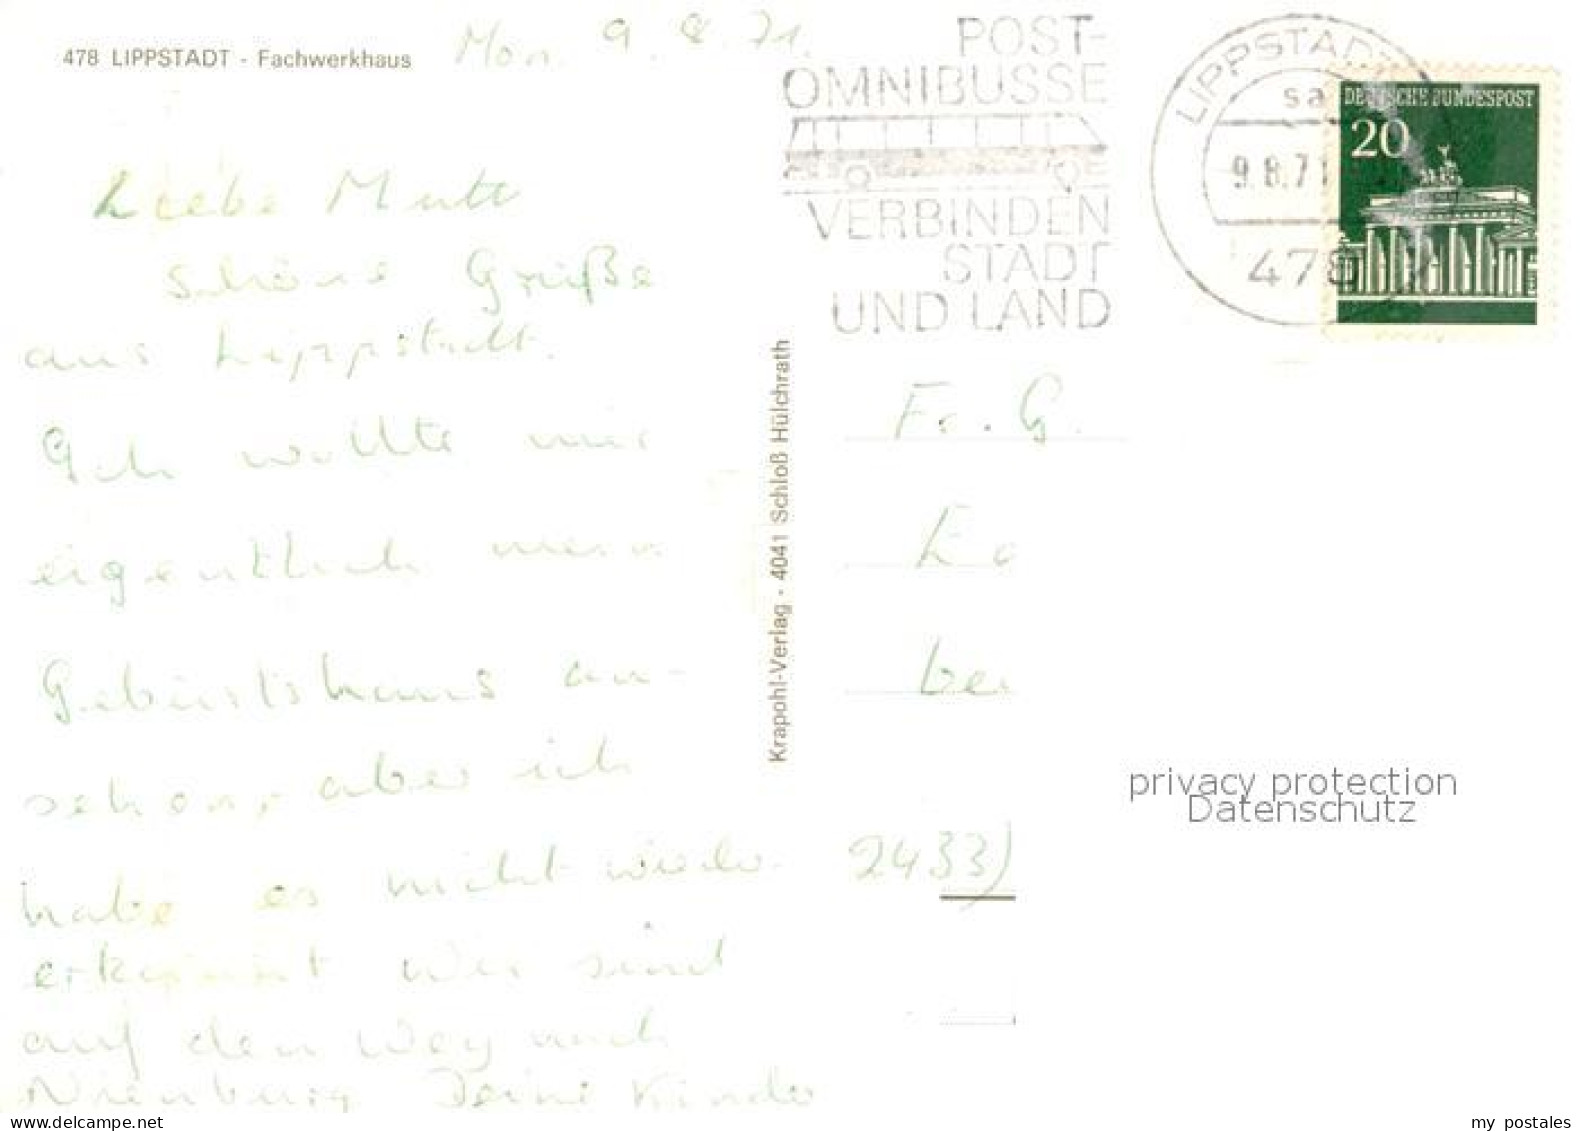 478 LIPPSTADT - Fachwerkhaus
Mon. 9. 8. 71.
POST-
OMNIBUSSE
VERBINDEN
STADT
UND LAND
LIPPSTADT
sa
9.8.71
478
DEUTSCHE BUNDESPOST
20
Liebe Mutti
Schöne Grüße
aus Lippstadt.
Ich wollte mir
eigentlich mein
Geburtshaus an-
sehen, aber ich
habe es nicht wieder
erkannt Wir sind
auf dem Weg nach
Nienburg Deine Kinder
Krapohl-Verlag · 4041 Schloß Hülchrath
Fr. G.
Lo
bei
2433)
privacy protection
Datenschutz
my postales